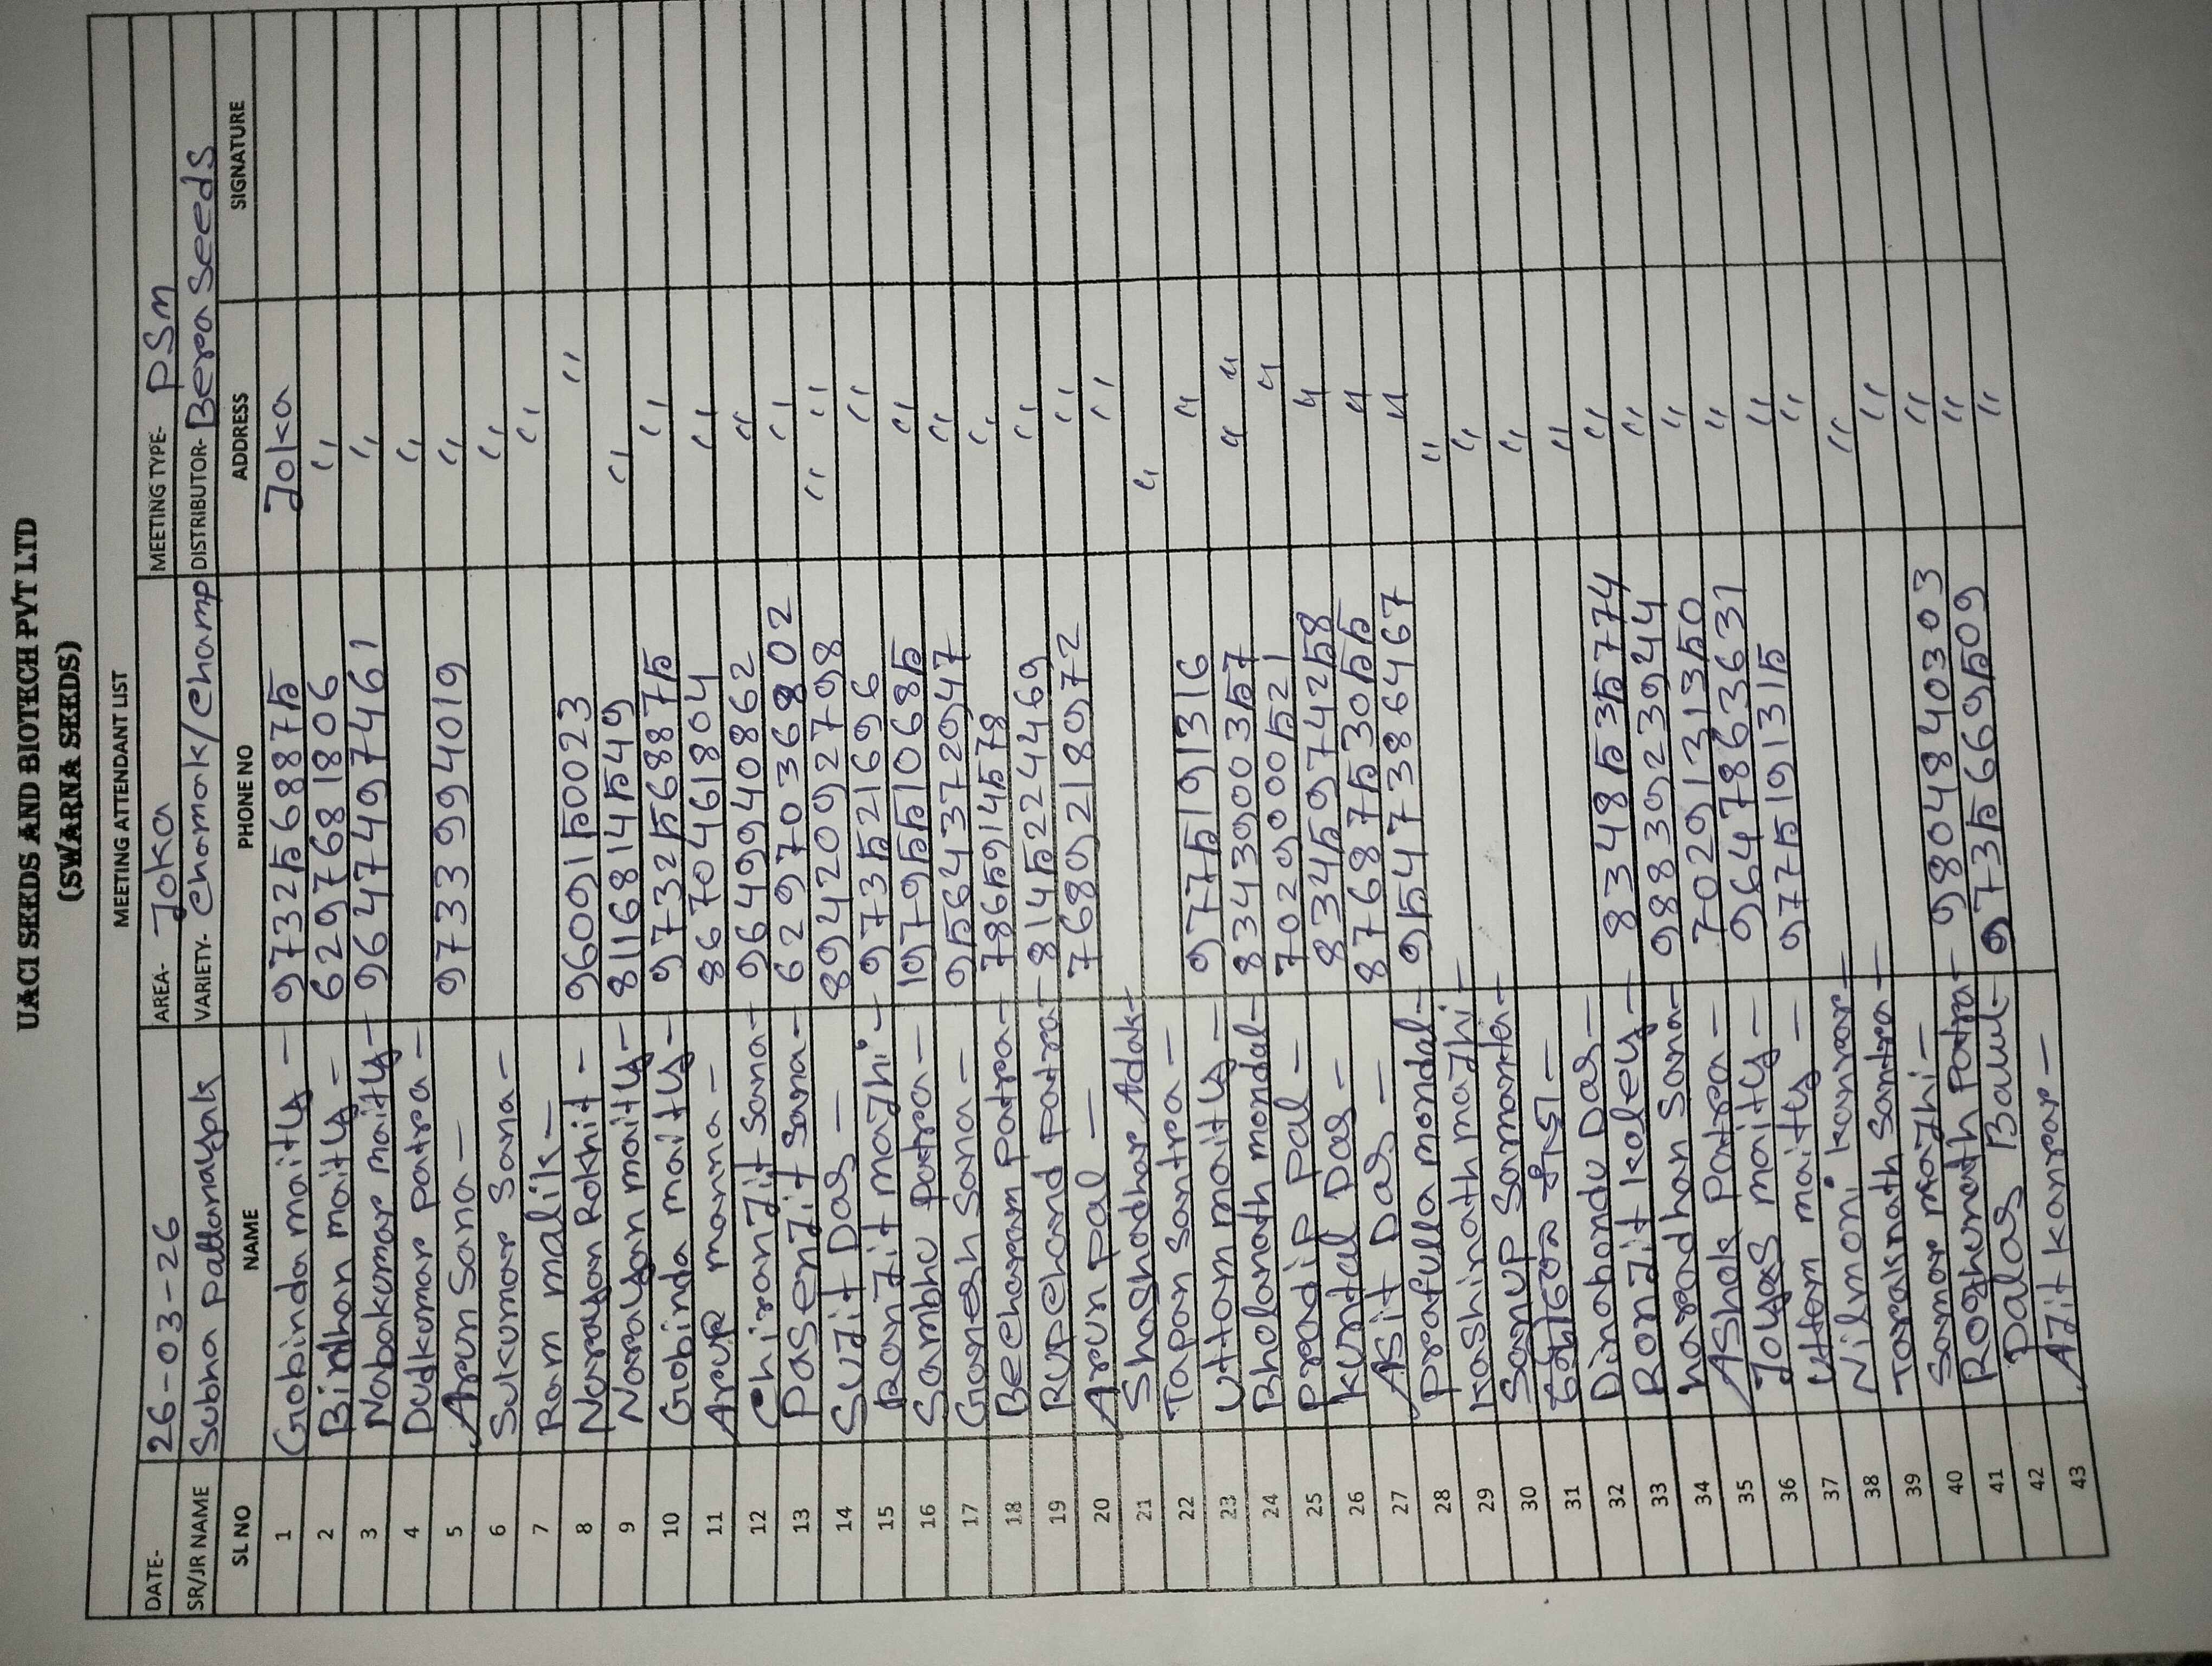 UACI SEEDS AND BIOTECH PVT LTD
(SWARNA SEEDS)
MEETING ATTENDANT LIST
DATE- 26-03-26 AREA- Joka MEETING TYPE- PSM
SR/JR NAME Subha Pattanayak VARIETY- Chamak/Champ DISTRIBUTOR- Bera Seeds
SL NO NAME PHONE NO ADDRESS SIGNATURE
1 Gobinda maity - 9732568875 Joka
2 Bidhan maity - 6297681806 "
3 Nabakumar maity - 9647497461 "
4 Dudkumar patra - "
5 Arun Sana - 9733994019 "
6 Sukumar Sana - "
7 Ram malik - "
8 Narayan Rokhit - 9609150023 "
9 Narayan maity - 8116814549 "
10 Gobinda maity - 9732568875 "
11 Arup manna - 8670461804 "
12 Chiranjit Sana - 9649940862 "
13 Pasenjit Sana - 6297036802 "
14 Sujit Das - 8942092798 " "
15 Ranjit mazhi - 973521696 "
16 Sambhu patra - 9795510685 "
17 Ganesh Sana - 9564372947 "
18 Becharam patra - 7865914578 "
19 Rupchand patra - 8145224469 "
20 Arun pal - 7689218972 "
21 Shashadhar Adak - "
22 Tapan Santra - "
23 Uttam maity - 9775191316 " "
24 Bholanath mondal - 8343900357 "
25 Pradip pal - 702900521 "
26 Kuntal Das - 8345974258 "
27 Asit Das - 8768753055 "
28 Prafulla mondal - 9547386467 "
29 Kashinath mazhi - "
30 Sarup Samanta - "
31 "
32 Dinabandu Das - "
33 Ranjit Koley - 8348535774 "
34 haradhan Sana - 9883923944 "
35 Ashok Patra - 7029131350 "
36 Joyas maity - 9647863631 "
37 Uttam maity - 9775191315 "
38 Nilmoni kanrar - "
39 Taraknath Santra - "
40 Samar mazhi - "
41 Raghunath Patra - 9804840303 "
42 Palas Baul - 9735669509 "
43 Ajit kanrar -